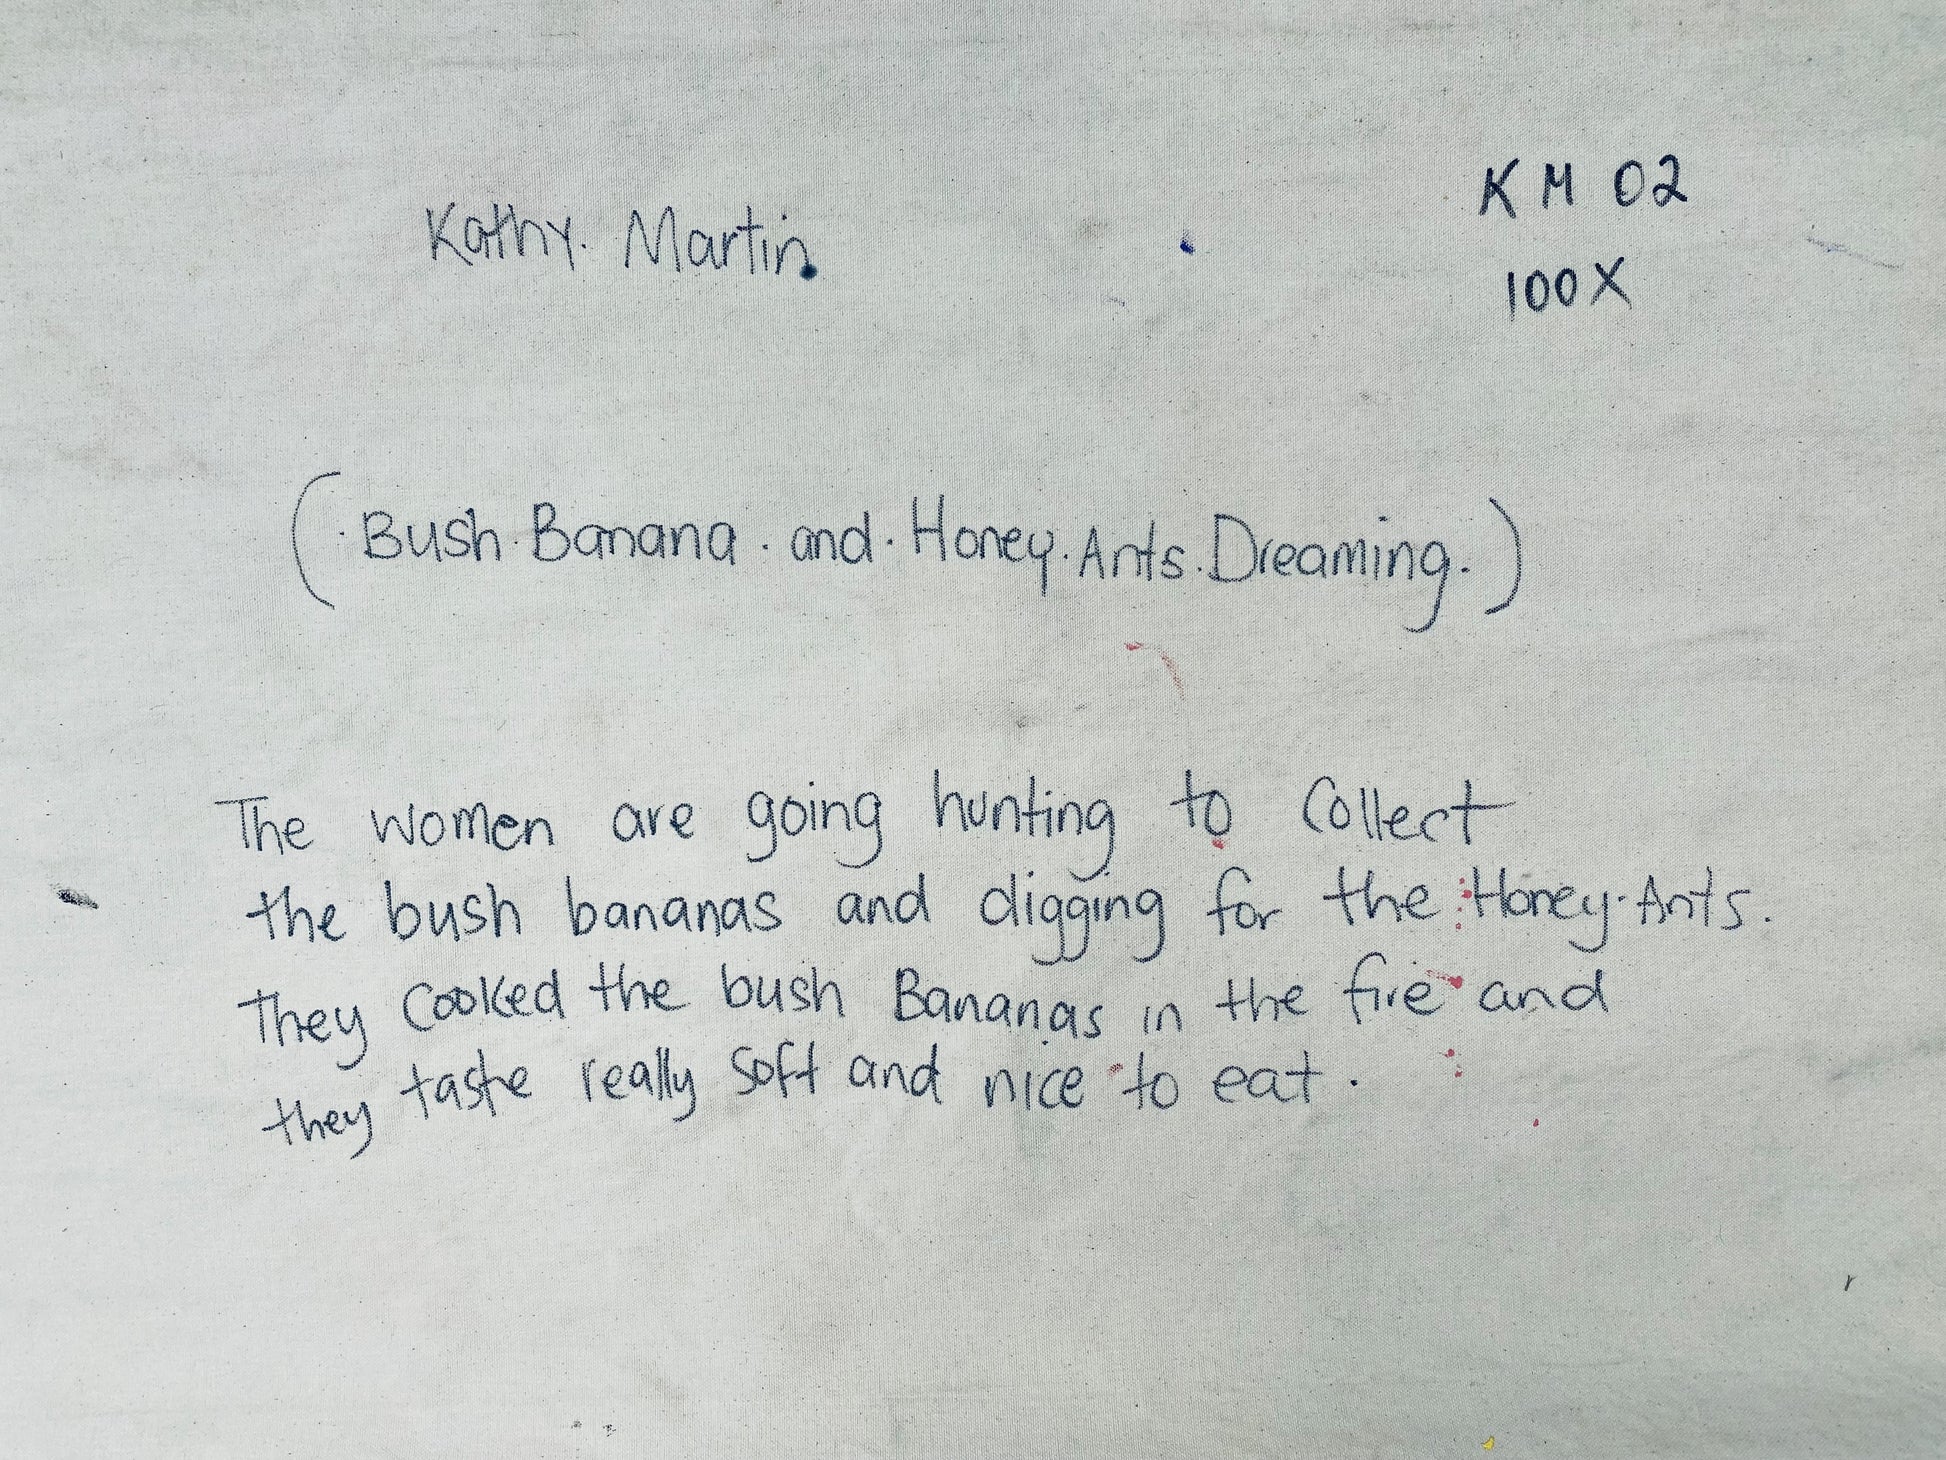 Kathy. Martin.
KM 02
100X
(.Bush.Banana.and.Honey.Ants.Dreaming.)
The women are going hunting to Collect
the bush bananas and digging for the Honey.Ants.
They Cooked the bush Bananas in the fire and
they taste really soft and nice to eat.